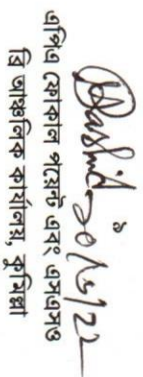 এপিএ ফোকাল পয়েন্ট এবং এসএসও
ব্রি আঞ্চলিক কার্যালয়, কুমিল্লা